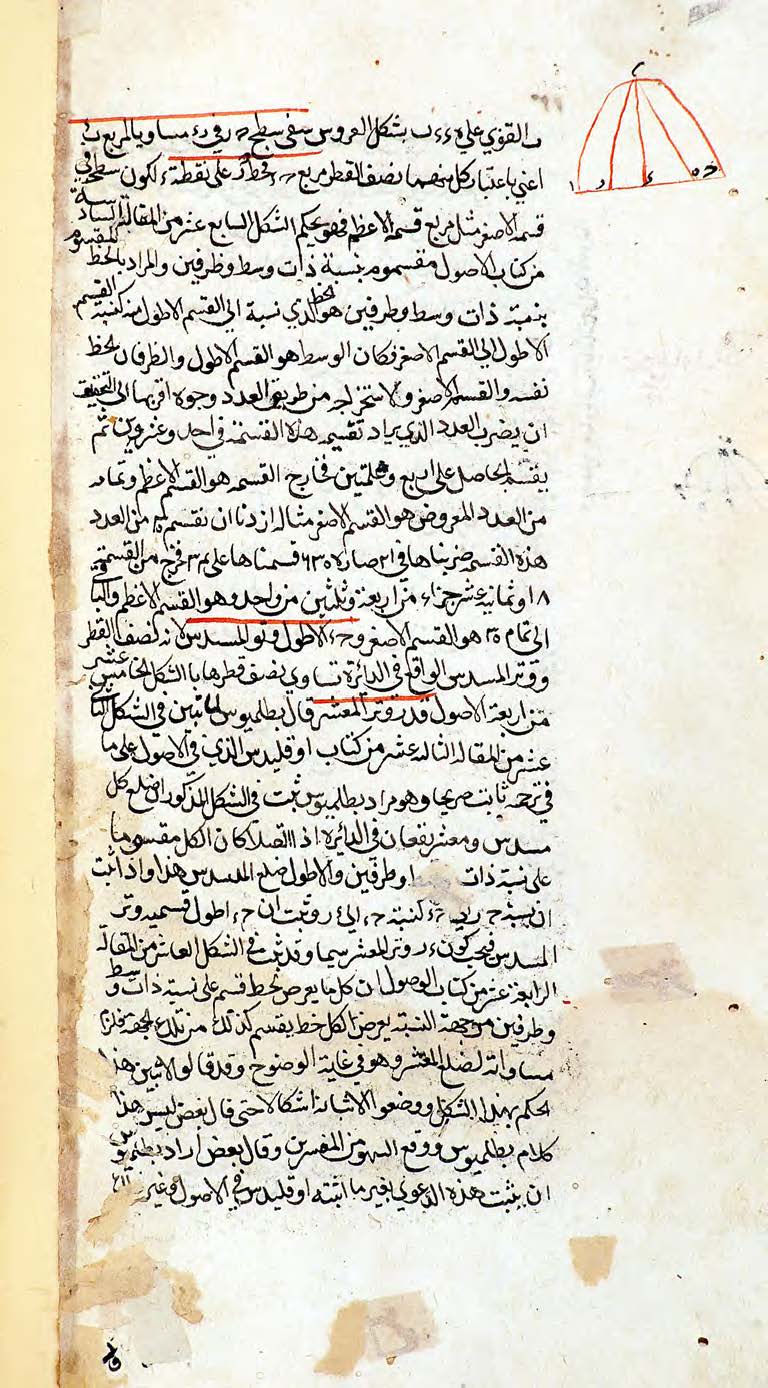 ب القوي علي ء ء ب بشكل العروس سقى سطح ح ر في ر ء مساويا لمربع ء
اعني باعتبار كل منهما نصف القطر مربع ح ء لخط ر على نقطة ء لكون سطحه في
قسمه الاصغر مثل مربع قسمه الاعظم فهو بحكم الشكل السابع عشر من المقالة السادسة
من كتاب الاصول مقسموم بنسبة ذات وسط وطرفين والمراد بالخط المقسوم
بنسبة ذات وسط وطرفين هو الخط الذي نسبة الي القسم الاطول منه كنسبة القسم
الاطول الي القسم الاصغر فكان الوسط هو القسم الاطول والطرفان الخط
نفسه والقسم الاصغر ولاستخراجه من طريق العدد وجوه اقربها الي التحقيق
ان يضرب العدد الذي يراد تقسيمه هذه القسمة في احد وعشرين ثم
يقسم الحاصل علي اربع وثلثين فخارج القسمه هو القسم الاعظم وتمامه
من العدد المعروض هو القسم الاصغر مثاله اردنا ان نقسم ٣٠ من العدد
هذه القسمه ضربناها في ٢١ صار ٦٣٠ قسمناها على ٣٤ فخرج من القسمة
١٨ وثمانية عشر جزاء من اربعة وثلثين من واحد وهو القسم الاعظم والباقي
الى تمام ٣٠ هو القسم الاصغر و ح ء الاطول وتر المسدس لانه نصف القطر
ووتر المسدس الواقع في الدائرة تساوي نصف قطرها با الشكل الخامس عشر
من اربعة الاصول قدر وتر المعشر قال بطلميوس لما تبين في الشكل التاسع
عشر من المقاله الثالثه عشر من كتاب اوقليدس الذي في الاصول على ما
في ترجمه ثابت صريحا وهو مراد بطلميوس ثبت في الشكل المذكور ان ضلع كل
مسدس ومعشر يقعان في الدائرة اذا اتصلا كان الكل مقسوما
على نسبة ذات او طرفين والاطول ضلع المسدس هذا واذا ثبت
ان نسبة ح ر الي ح ء كنسبة ح ء الي ء ر وثبت ان ح ء اطول قسميه وتر
المسدس فيجب كون ء ر وتر المعشر سيما وقد ثبت في الشكل العاشر من المقالة
الرابعة عشر من كتاب الوصول ان كل ما يعرض لخط قسم على نسبة ذات وسط
وطرفين من جهة النسبة يعرض لكل خط يقسم كذلك من تلك الجهة فلزم
مساواته لضلع المعشر وهو في غاية الوضوح وقد قالوا لا تبين هذا
الحكم بهذا الشكل ووضعوا لاثباته اشكالا حتى قال بعض ليس هذا
كلام بطلميوس ووقع السهو من المفسرين وقال بعض اراد بطلميوس
ان يثبت هذه الدعوي بغير ما اثبته اوقليدس في الاصول وغير